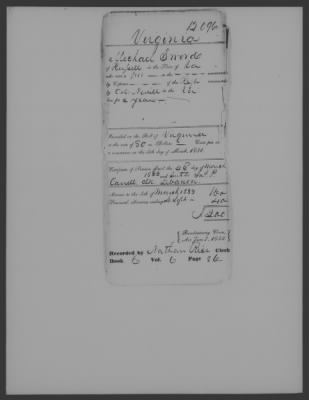 12.096
Virginia
Michael Swords
of Russell in the State of Va
who was a Pri in the
by Captain of the Regt
by Col. in the Va
for 2 years
Inscribed on the Roll of Virginia
at the rate of 80 Dollars Cents per annum
to commence on the 4th day of March, 1831.
Certificate of Pension issued the 28 day of March
1833 and
Lebanon
Arrears to the 4th of March 1833 160
Semi-anl. allowance ending 4 Sept 40
$200
Revolutionary Claim,
Act June 7, 1832.
Recorded by Nathan Rice Clerk
Book E Vol. 6 Page 26